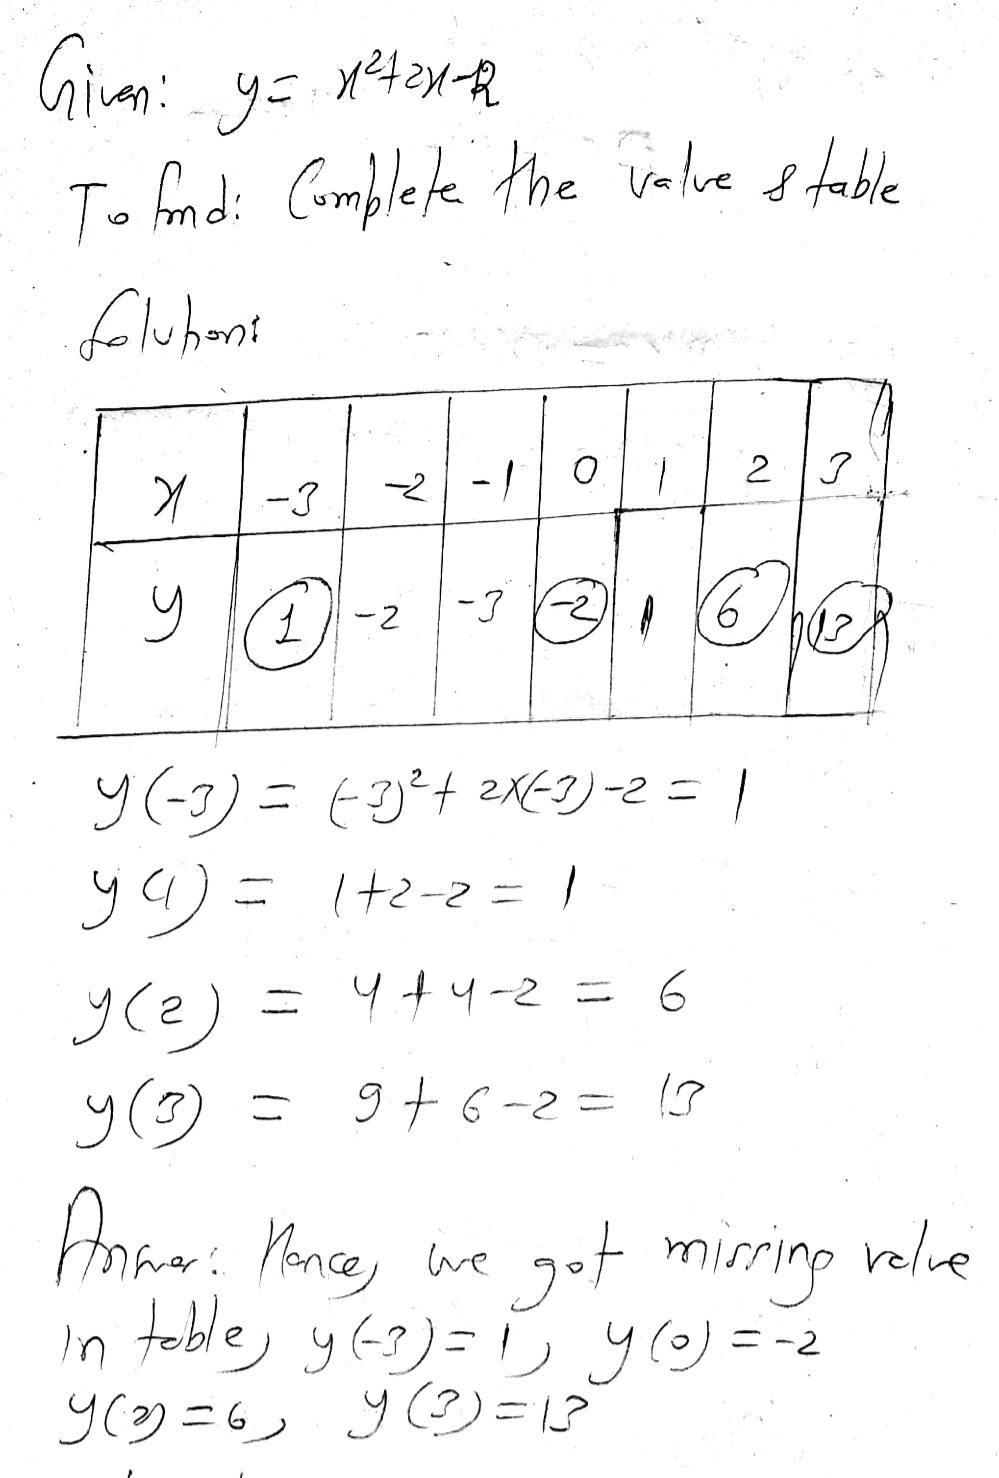 Given: y = x²+2x-2
To find: Complete the value s table
Solution:
x -3 -2 -1 0 1 2 3
y 1 -2 -3 -2 1 6 13
y(-3) = (-3)²+ 2x(-3)-2 = 1
y(1) = 1+2-2 = 1
y(2) = 4+4-2 = 6
y(3) = 9+6-2 = 13
Answer: Hence, we got missing value
in table, y(-3)=1, y(0)=-2
y(2)=6, y(3)=13